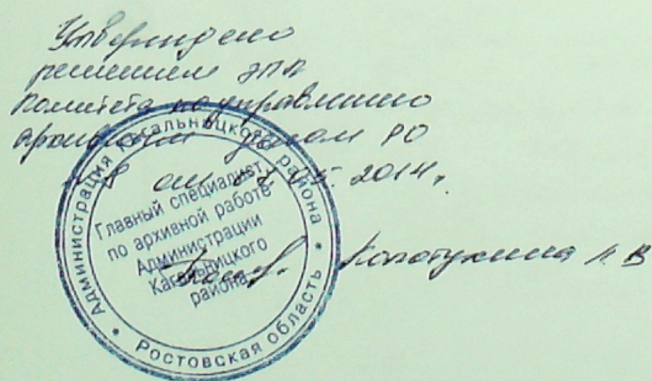 Утверждено
решением ЭПК
Комитета по управлению
архивным делом РО
от 2014 г.
Администрация Кагальницкого района
Ростовская область
Главный специалист
по архивной работе
Администрации
Кагальницкого
района